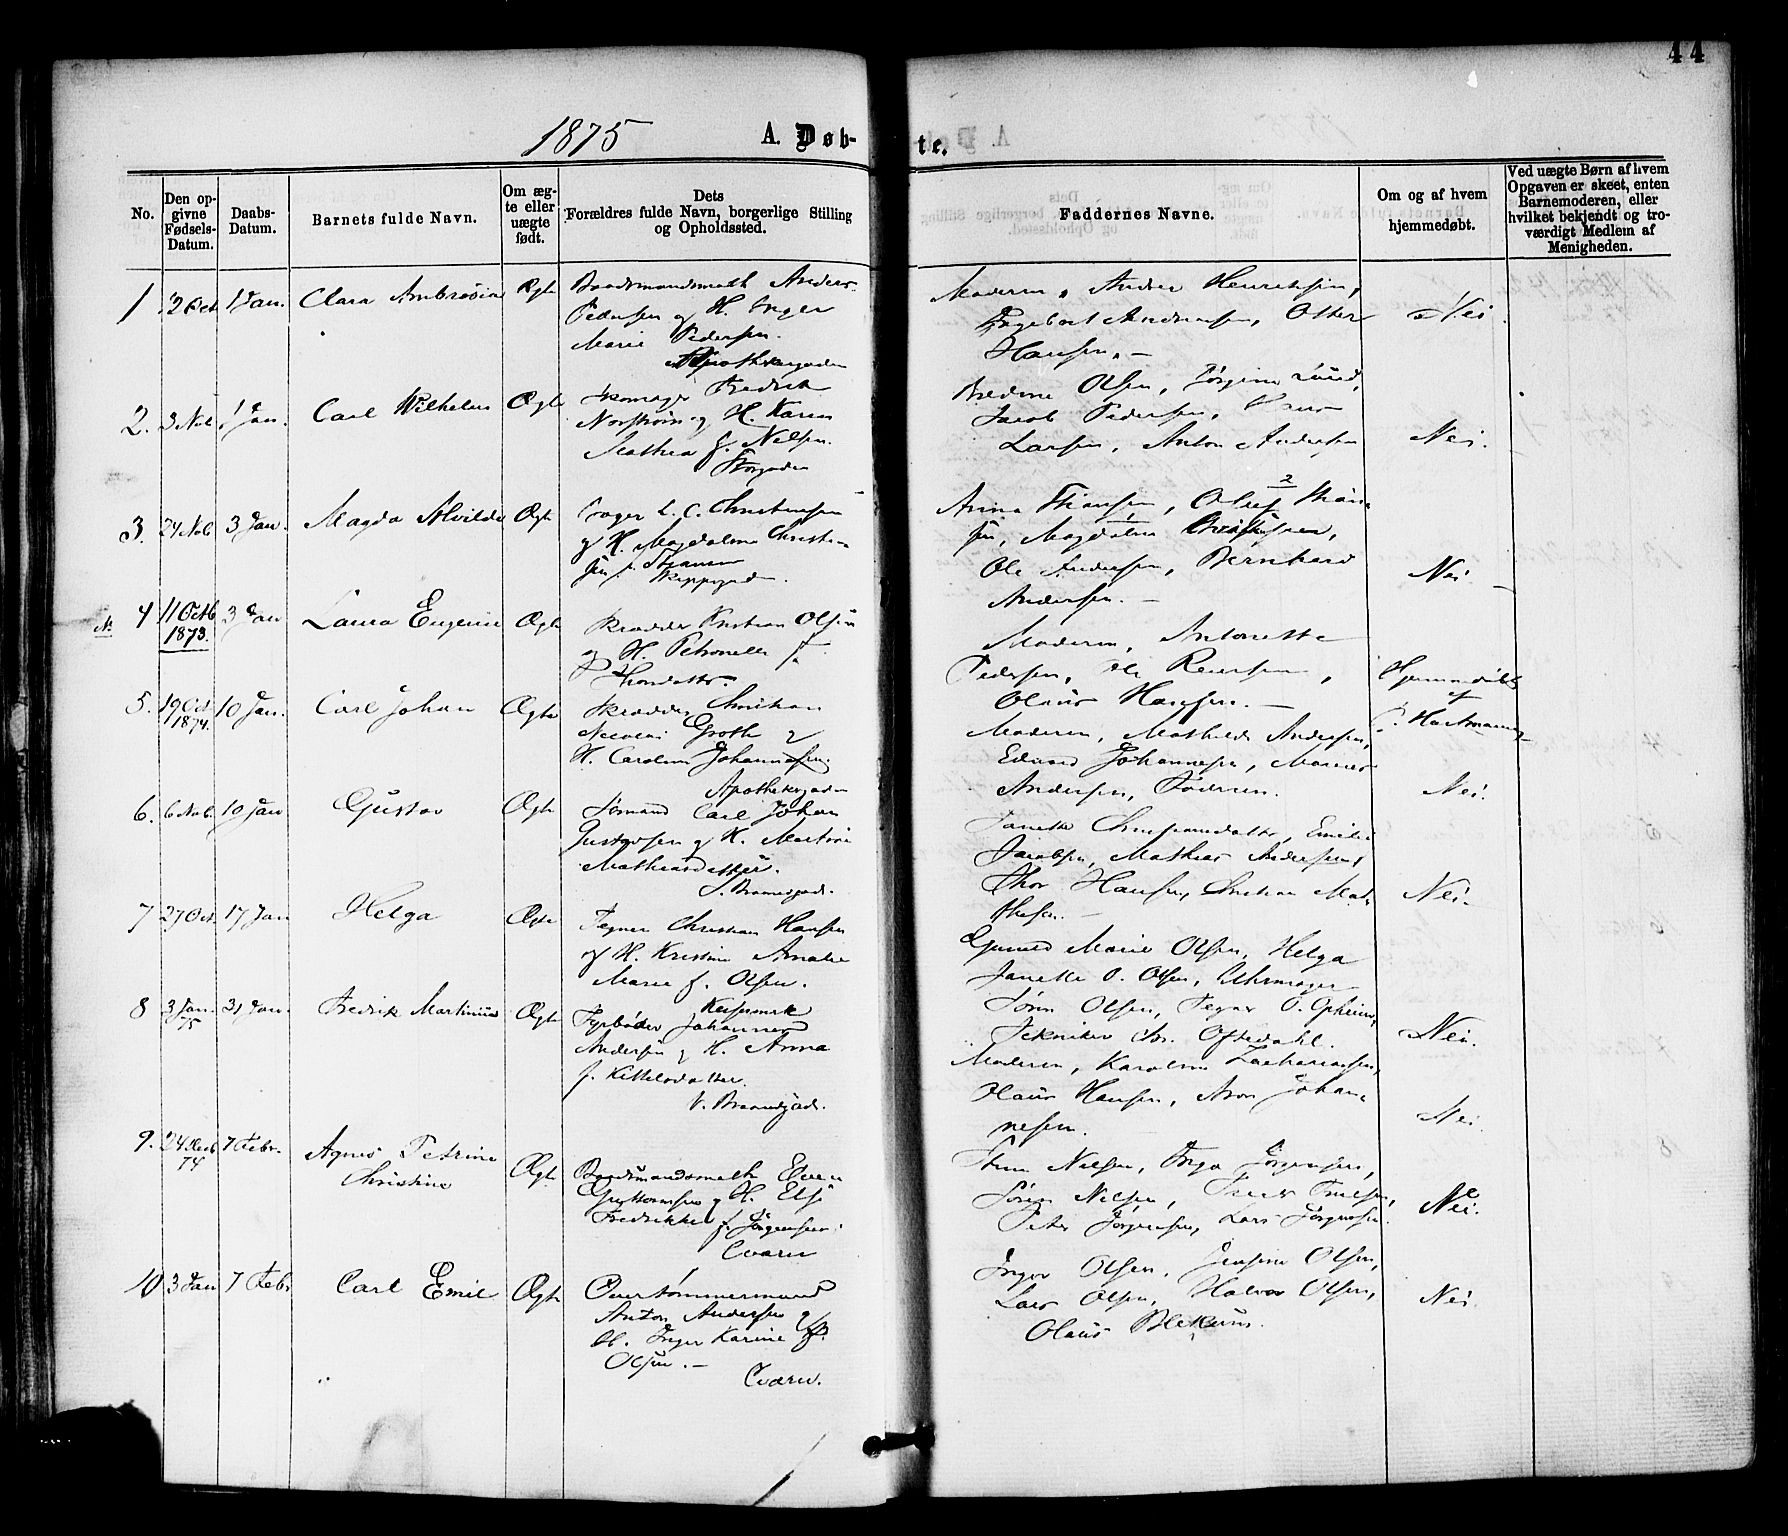 44
1875 A. Døb-
te.
No.
Den op-
givne
Fødsels-
Datum.
Daabs-
Datum.
Barnets fulde Navn.
Om æg-
te eller
uægte
født.
Dets
Forældres fulde Navn, borgerlige Stilling
og Opholdssted.
Faddernes Navne.
Om og af hvem
hjemmedøbt.
Ved uægte Børn af hvem
Opgaven er skeet, enten
Barnemoderen, eller
hvilket bekjendt og tro-
værdigt Medlem af
Menigheden.
1 2 Oct 1 Jan. Clara Ambrosia Ægte
Baadsmandsmath Anders
Pedersen og H. Inger
Marie Pedersen.
Apothekergaden
Moderen, Andrea
Hansen. —
Nei.
2. 3 Nob 1 Jan. Carl Wilhelm Ægte
Skomager Fredrik
og H. Karen
Mathea f. Nelsen.
Storgaden
Olsen, Jørgine Lund,
Jacob Pedersen,
Larsen, Anton Andersen
Nei.
3. 24 Nob 3 Jan. Magda Alvilde Ægte
L. C. Christensen
og H. Magdalene Christen
sen f.
Anna Hansen, Oluf
sen, Magdalene Christensen,
Ole Andersen, Bernhard
Andersen. —
Nei. —
4 11 Octb 3 Jan Laura Eugenie Ægte
1873.
Skrædder Kristian Olsen
og H. Petronelle f.
Moderen, Antonette
Pedersen, Ole
Olaus Hansen. —
Hjemmedøbt
af
P. Hartmann
5. 19 Oct. 10 Jan. Carl Johan Ægte
1874.
Skrædder Christian
Nicolai Groth og
H. Caroline Johannesen
Apothekergaden
Moderen, Mathilde Andersen,
Edvard Johannesen, Marius
Andersen, Faderen.
Nei.
6. 6 Nob. 10 Jan Gustav Ægte
Sømand Carl Johan
Gustavsen og H.
Mathiasdatter.
Janette Emilie
Jacobsen, Mathias Andersen,
Thor Hansen, Christian Mat
thesen. —
Nei.
7 27 Oct. 17 Jan Helga Ægte
Tegner Christian Hansen
og H. Kristine Amalie
Marie f. Olsen.
Marie Olsen, Helga
Janette O. Olsen, Uhrmager
Søren Olsen, Tegner O. Opheim,
Tekniker Oftedahl.
Nei.
8 3 Jan. 31 Jan. Fredrik Martinius Ægte
75
Fyrbøder Johannes
Andersen og H. Anna
f. Kittelsdatter.
V.
Moderen, Karoline Zachariassen,
Olaus Hansen, Aron Johan-
nesen.
Nei.
9. 24 Decb 7 Febr. Agnes Petrine
74 Christine Ægte
Baadsmandsmath Even
Guttormsen og H. Else
Fredrikke f. Jørgensen.
Nelsen, Inga Jørgensen,
Søren Nelsen,
Peter Jørgensen, Lars Jørgensen.
Nei.
10 3 Jan 7 Febr Carl Emil Ægte
Qvartømmermand
Anton Andersen og
H. Inger Karine f.
Olsen. —
Inger Olsen, Jensine Olsen,
Lars Olsen, Halvor Olsen,
Olaus Blekum.
Nei.